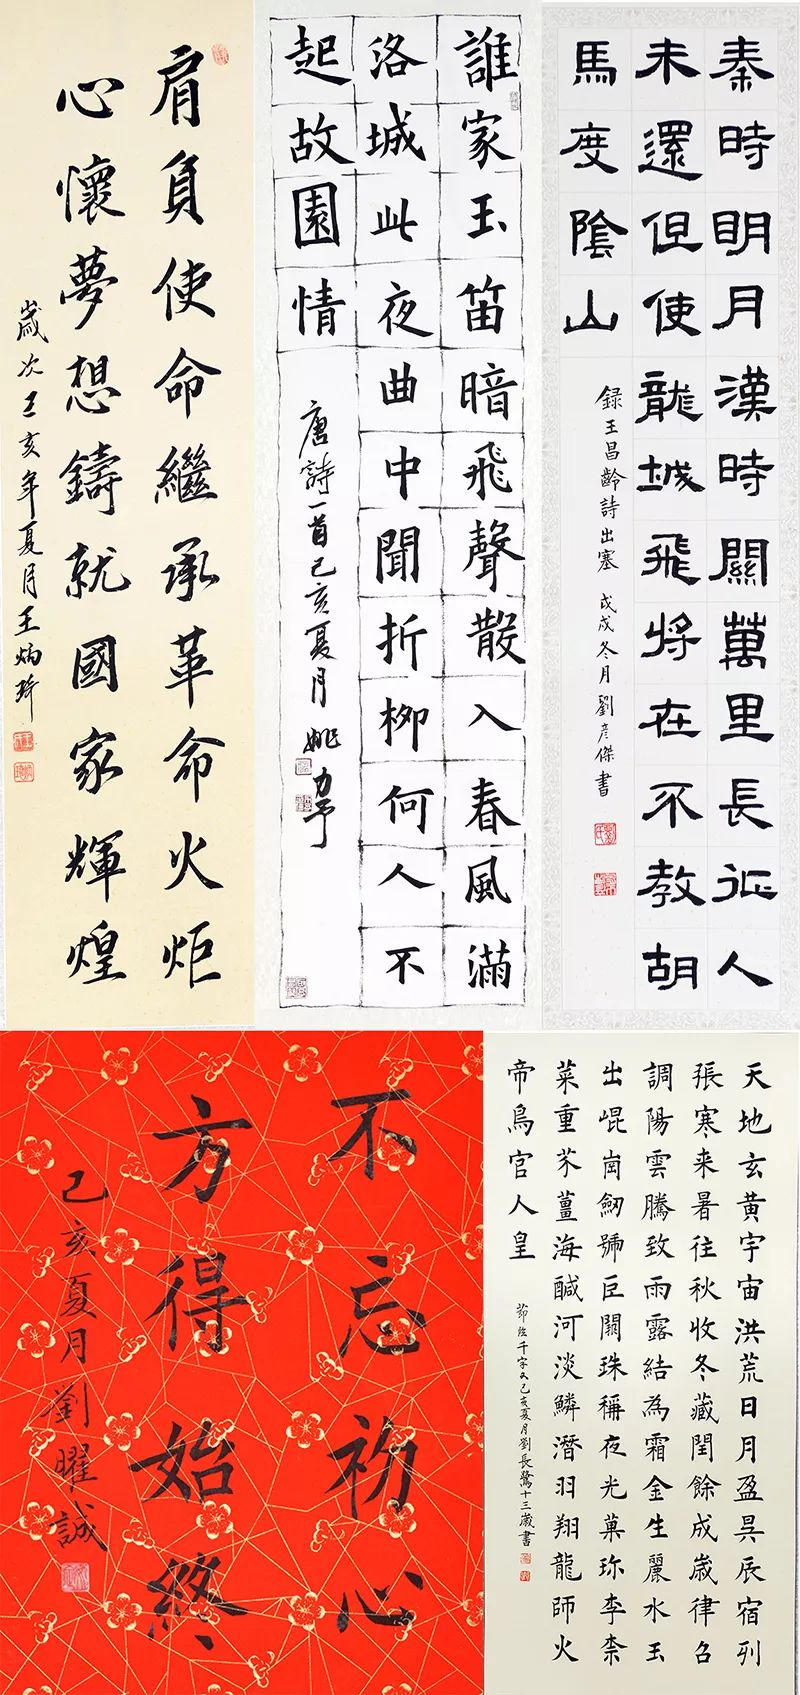 肩負使命繼承革命火炬
心懷夢想鑄就國家輝煌
歲次己亥年夏月王炳琦
誰家玉笛暗飛聲散入春風滿
洛城此夜曲中聞折柳何人不
起故園情
唐詩一首己亥夏月姚力予
秦時明月漢時關萬里長征人
未還但使龍城飛將在不教胡
馬度陰山
録王昌齡詩出塞 戊戌冬月劉彦傑書
不忘初心
方得始終
己亥夏月劉曜誠
天地玄黄宇宙洪荒日月盈昃辰宿列
張寒来暑往秋收冬藏閏餘成歲律召
調陽雲騰致雨露結為霜金生麗水玉
出崐崗劒號巨闕珠稱夜光菓珎李柰
菜重芥薑海鹹河淡鱗潛羽翔龍師火
帝鳥官人皇
節臨千字文己亥夏月劉長鷺十三歲書